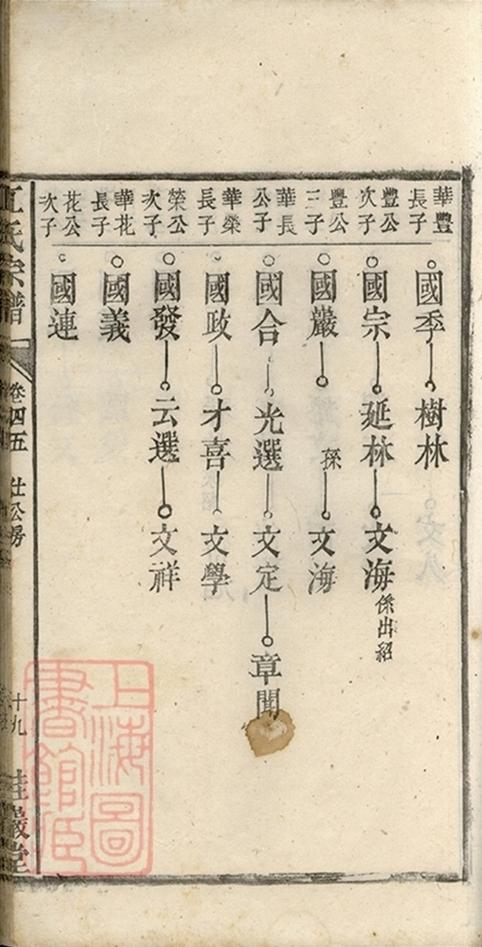 華豐長子 國季 樹林
豐公次子 國宗 延林 文海 係出紹
豐公三子 國嚴 孫 文海
華長公子 國合 光選 文定 章聞
華榮長子 國政 才喜 文學
榮公次子 國發 云選 文祥
華花長子 國義
花公次子 國連
氏宗譜 卷四五 仕公房 十九
上海圖
書館藏